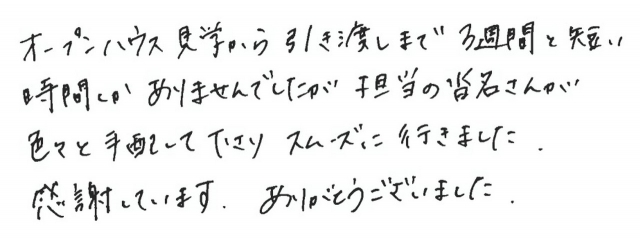 オープンハウス見学から引き渡しまで3週間と短い
時間しかありませんでしたが担当の皆名さんが
色々と手配して下さりスムーズに行きました.
感謝しています. ありがとうございました.